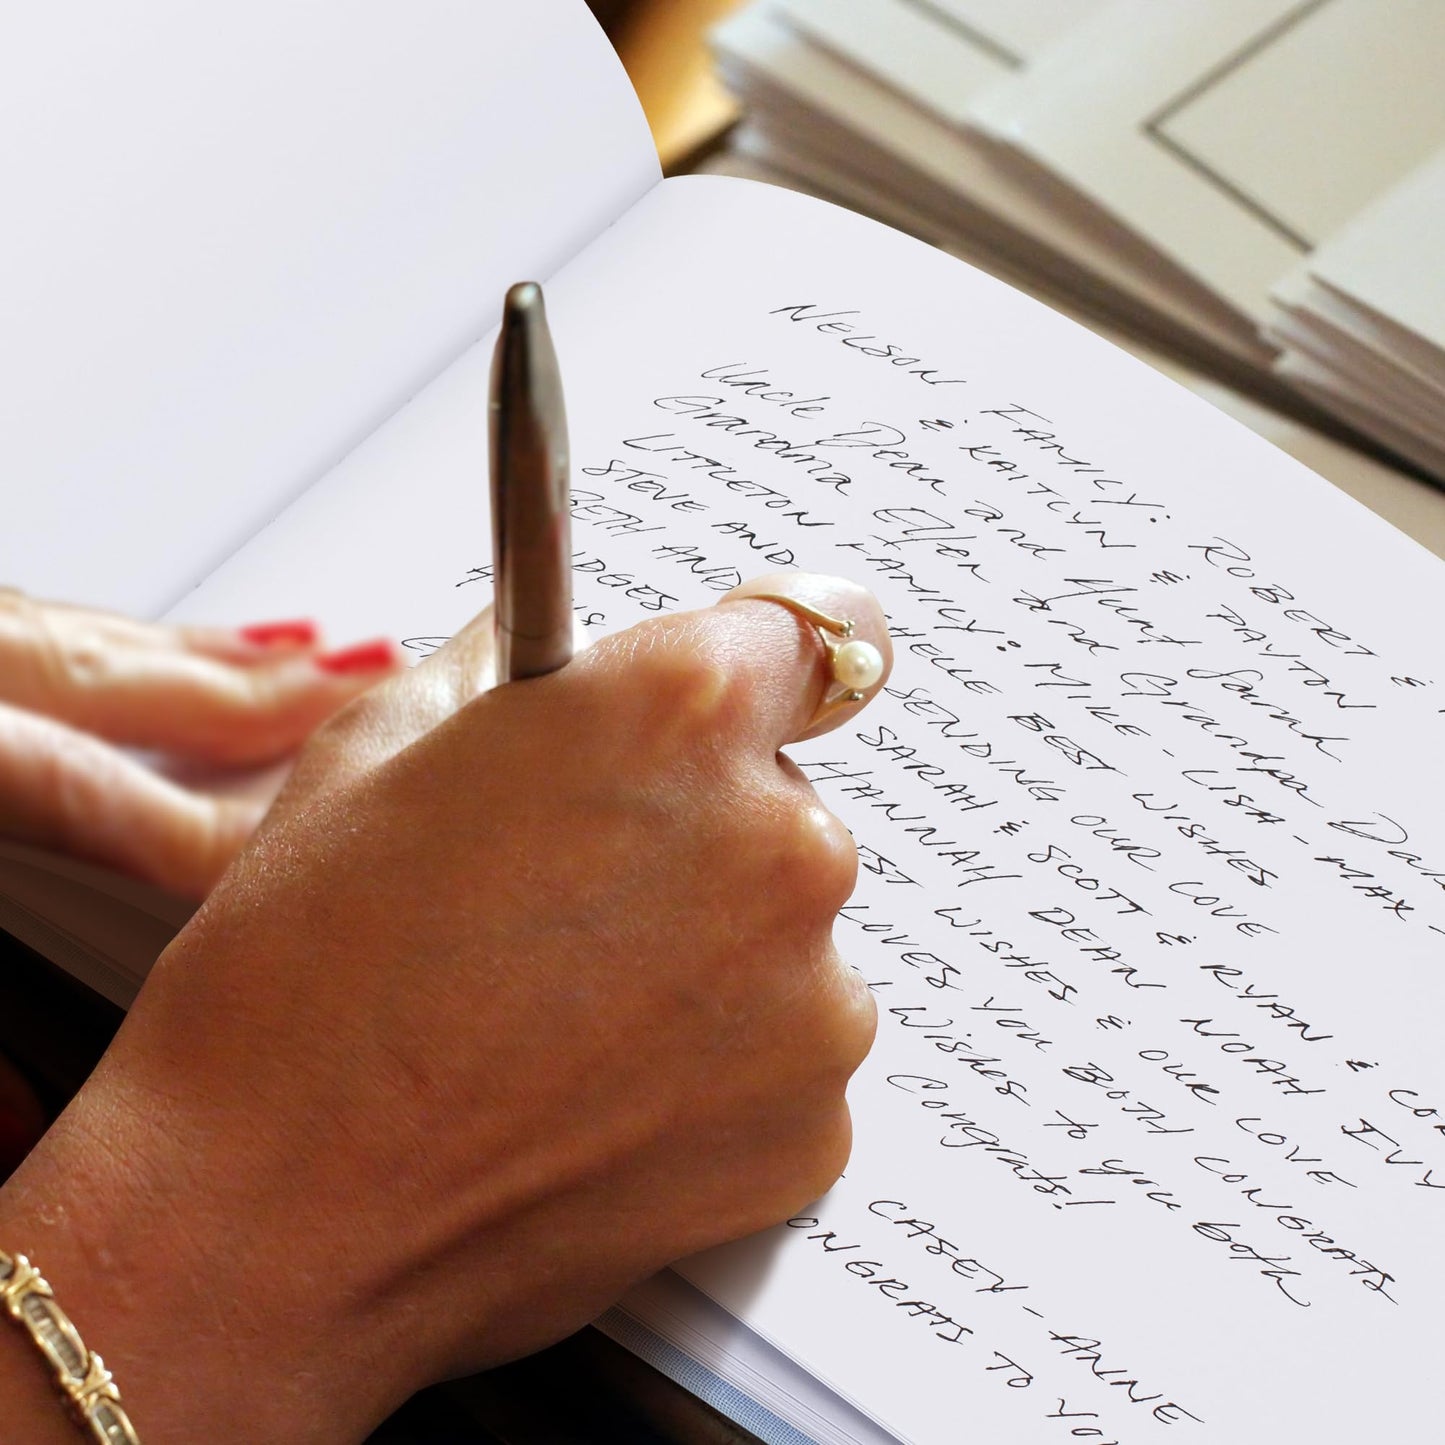 NELSON FAMILY: ROBERT &
& KAITLYN & PAYTON
Uncle Dean and Aunt Sarah
Grandma Ellen and Grandpa
LITTLETON FAMILY: MIKE - LISA - MAX -
STEVE AND HELLE BEST WISHES
BETH AND SENDING OUR LOVE
SARAH & SCOTT & RYAN &
HANNAH DEAN NOAH IVY
WISHES & OUR LOVE
LOVES YOU BOTH CONGRATS
Wishes to you both
Congrats!
CASEY - ANNE
ONGRATS TO